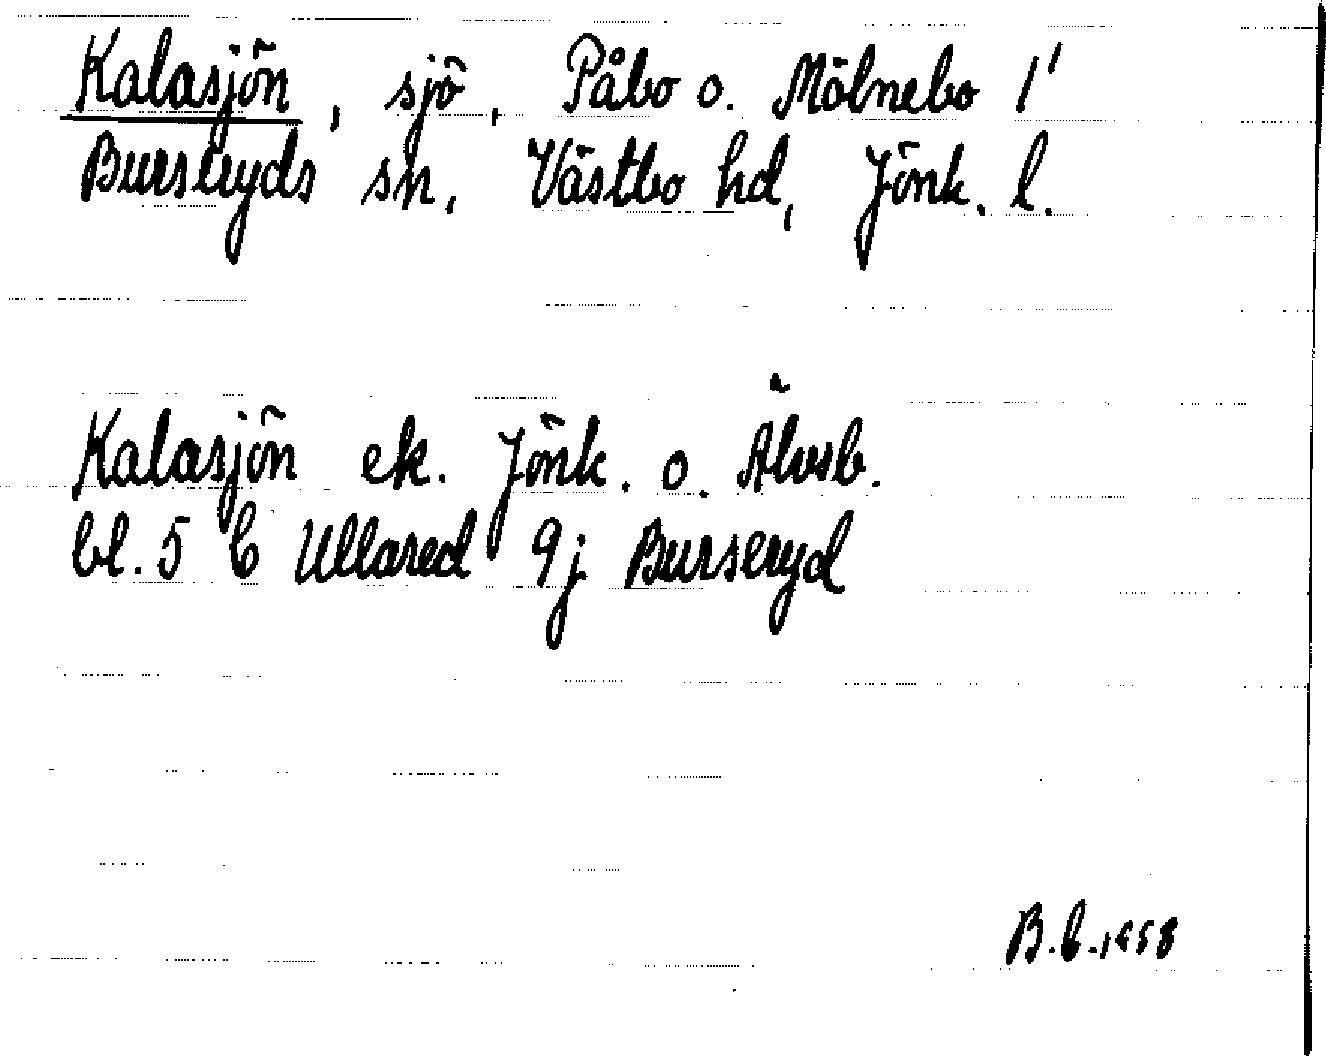 Kalasjön, sjö, Påbo o. Mölnebo 1'
Burseryds sn, Västbo hd, Jönk. l.
Kalasjön ek. Jönk. o. Älvsb.
bl. 5 C Ullared 9j Burseryd
1958